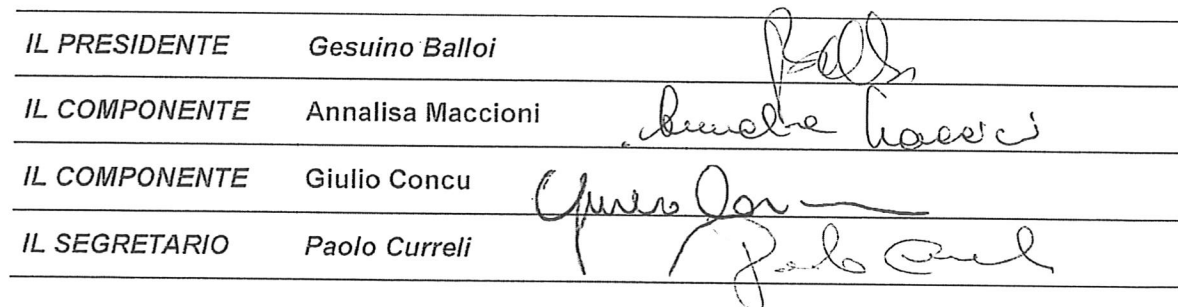 IL PRESIDENTE Gesuino Balloi
IL COMPONENTE Annalisa Maccioni
IL COMPONENTE Giulio Concu
IL SEGRETARIO Paolo Curreli